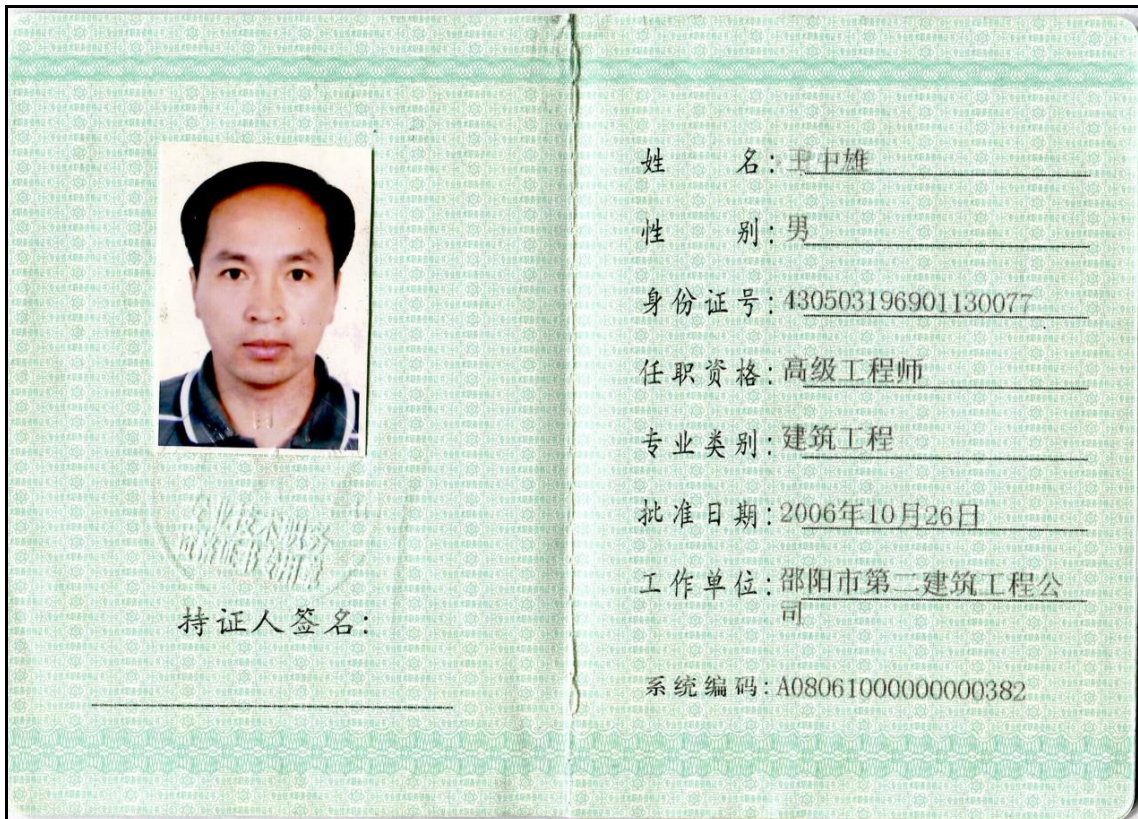 持证人签名:
姓名:王中雄
性别:男
身份证号:430503196901130077
任职资格:高级工程师
专业类别:建筑工程
批准日期:2006年10月26日
工作单位:邵阳市第二建筑工程公
司
系统编码:A08061000000000382